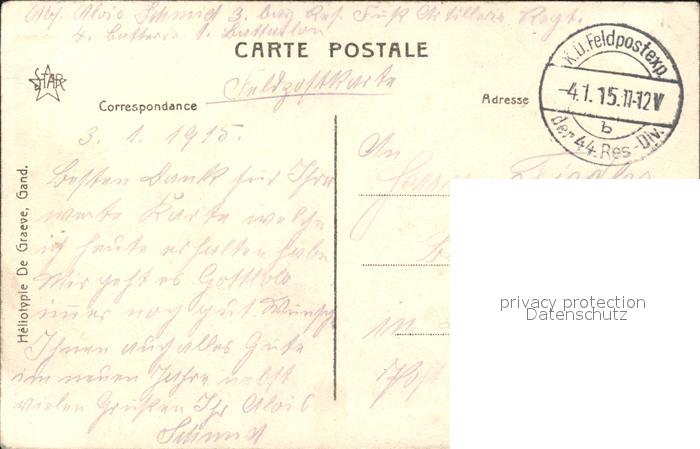 Abs. Alois Schmid 3. bay. Res. Fuß Artillerie Regt.
4. Batterie 1. Battallon
CARTE POSTALE
Feldpostkarte
STAR
Correspondance
Adresse
K.D.Feldpostexp.
-4.1.15.11-12V
b
der 44.Res-Div.
3. 1. 1915.
Besten Dank für Ihre
werte Karte welche
ich heute erhalten habe
Mir geht es Gottlob
immer noch gut. Wünsche
Ihnen auch alles Gute
im neuen Jahre nebst
vielen Grüßen Ihr Alois
Schmid
An
Herrn
in
Post
Héliotypie De Graeve, Gand.
privacy protection
Datenschutz